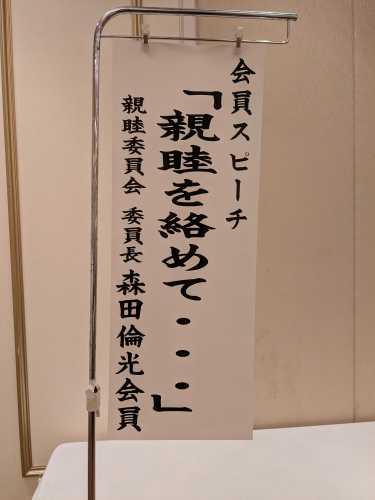 会員スピーチ
「親睦を絡めて・・・」
親睦委員会 委員長 森田倫光会員